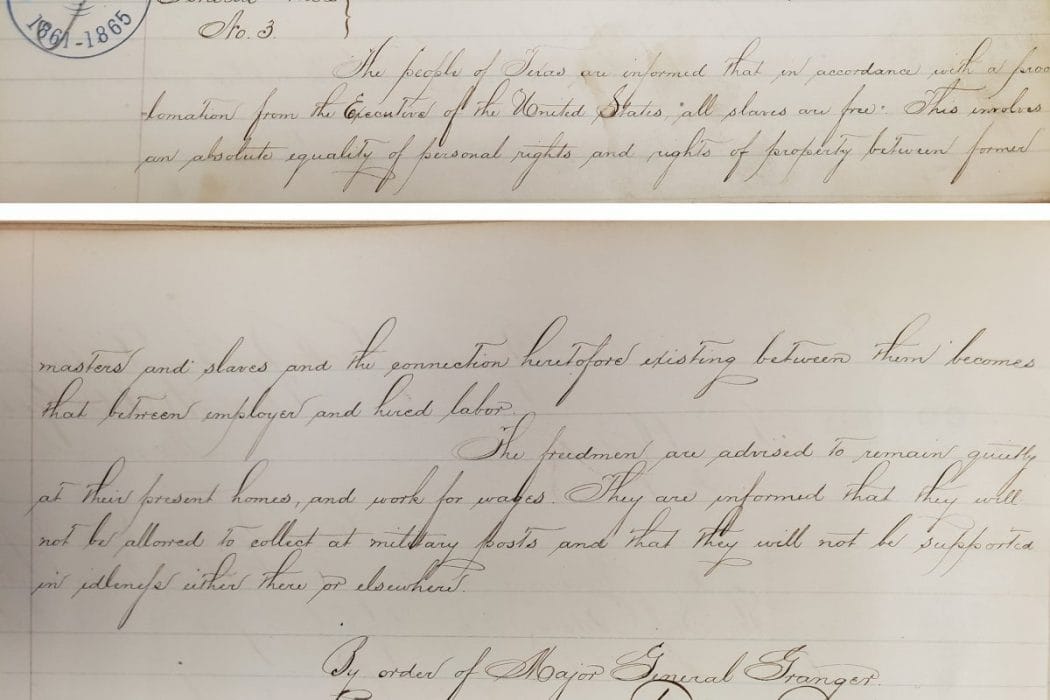 1861-1865
General
No. 3.
The people of Texas are informed that in accordance with a proc
lamation from the Executive of the United States, "all slaves are free". This involves
an absolute equality of personal rights and rights of property between former
masters and slaves and the connection heretofore existing between them becomes
that between employer and hired labor.
The freedmen are advised to remain quietly
at their present homes, and work for wages. They are informed that they will
not be allowed to collect at military posts and that they will not be supported
in idleness either there or elsewhere.
By order of Major General Granger.